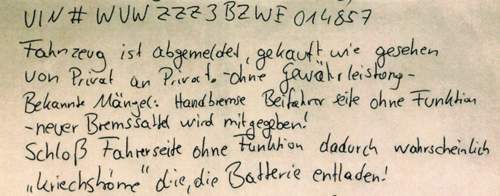 VIN # WVWZZZ3BZWE014857
Fahrzeug ist abgemeldet, gekauft wie gesehen
von Privat an Privat. -ohne Gewährleistung-
Bekannte Mängel: Handbremse Beifahrer seite ohne Funktion
-neuer Bremssattel wird mitgegeben!
Schloß Fahrerseite ohne Funktion dadurch wahrscheinlich
„Kriechströme" die, die Batterie entladen!